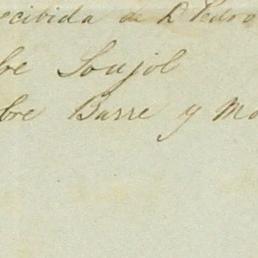 ecibida de D. Pedro
be Soujol
bre Barre y Mo